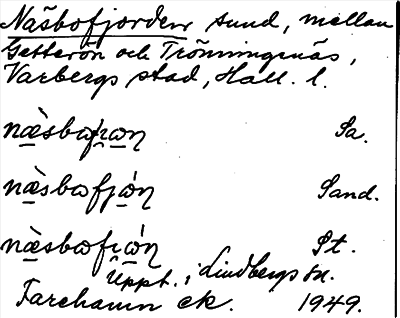 Näsbofjorden, sund, mellan
Getterön och Trönningenäs,
Varbergs stad, Hall. l.
næ̀sbɷfɹɷη Sa.
næ̀sbɷfjɷ́η Sand.
næ̀sbɷfɹɷ́η St.
Uppt. i Lindbergs sn.
Farehamn ek. 1949.